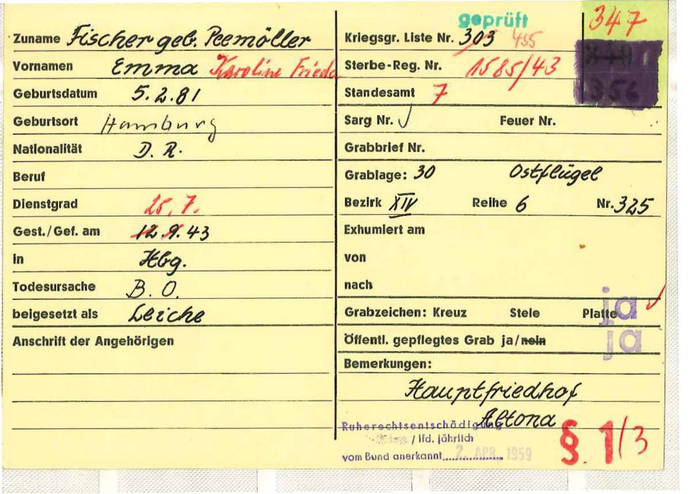 geprüft
347
Zuname Fischer geb. Peemöller
Kriegsgr. Liste Nr. 303 455
Vornamen Emma Karoline Frieda
Sterbe-Reg. Nr. 1585/43
356
Geburtsdatum 5.2.81
Standesamt 7
Geburtsort Hamburg
Sarg Nr. Feuer Nr.
Nationalität D. R.
Grabbrief Nr.
Beruf
Grablage: 30 Ostflügel
Dienstgrad 25.7.
Bezirk XIV Reihe 6 Nr. 325
Gest./Gef. am 12.9.43
Exhumiert am
in Hbg.
von
Todesursache B. O.
nach
beigesetzt als Leiche
Grabzeichen: Kreuz Stele Platte ja
Anschrift der Angehörigen
Öffentl. gepflegtes Grab ja/nein ja
Bemerkungen:
Hauptfriedhof
Altona
Ruherechtsentschädigung
/ lfd. jährlich
vom Bund anerkannt 2. APR. 1959
§ 1/3